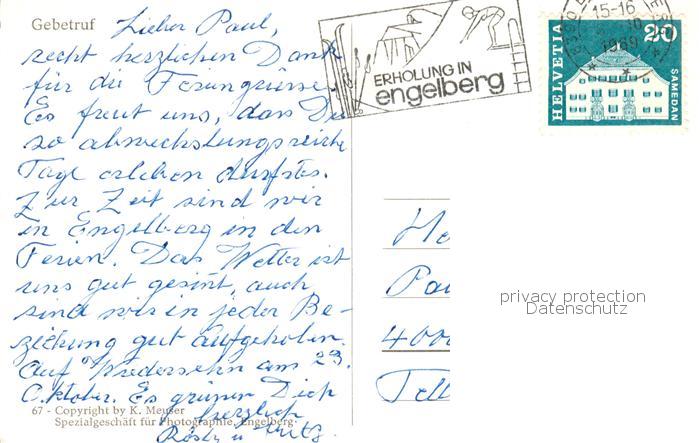 Gebetruf
Lieber Paul,
recht herzlichen Dank
für die Feriengrüsse.
Es freut uns, dass Du
so abwechslungsreiche
Tage erleben durftest.
Zur Zeit sind wir
in Engelberg in den
Ferien. Das Wetter ist
uns gut gesinnt, auch
sind wir in jeder Be-
ziehung gut aufgehoben.
Auf Wiedersehn am 23.
Oktober. Es grüssen Dich
herzlich
u
67 - Copyright by K. Meuser
Spezialgeschäft für Photographie, Engelberg
ERHOLUNG IN
engelberg
15-16
10
1969
HELVETIA
20
SAMEDAN
He
Pau
4000
Tell
privacy protection
Datenschutz